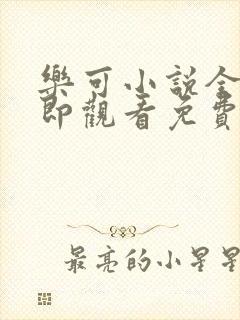 樂可小說全
即觀看免費
最亮的小星星